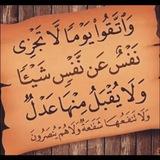 وَاتَّقُوا يَوْمًا لَّا تَجْزِى
نَفْسٌ عَن نَّفْسٍ شَيْـًٔا
وَلَا يُقْبَلُ مِنْهَا عَدْلٌ
وَلَا تَنفَعُهَا شَفَٰعَةٌ وَلَا هُمْ يُنصَرُونَ